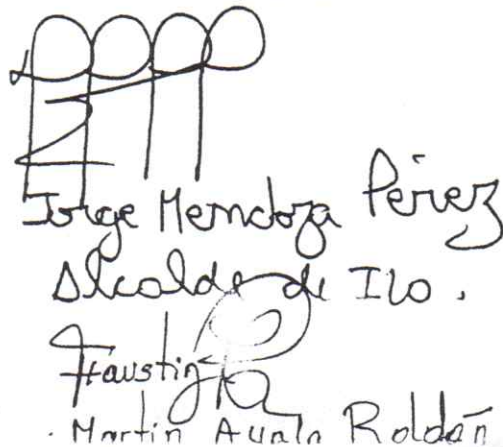 Jorge Mendoza Pérez
Alcalde de Ilo.
Faustin
. Martin Ayala Roldán